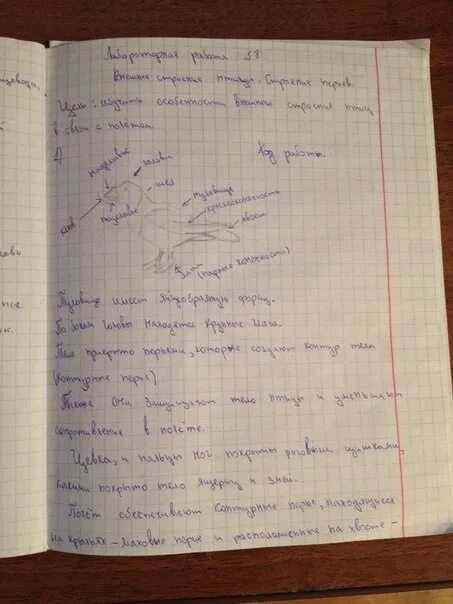 Лабороторная работа №8
Внешнее строение птицы. Строение перьев.
Цель: изучить особенности внешнего строения птиц
в связи с полётом.
1)
Ход работы.
надклювье
голова
шея
туловище
клюв
подклювье
хвост
лапы (парные конечности)
Туловище имеет яйцобразную форму.
По бокам головы находятся крупные глаза.
Тело прикрыто перьями, которые создают контур тела
(контурные перья)
Также они защищают тело птицы и уменьшают
сопротивление в полёте.
Цевка, и пальцы ног покрыты роговыми щитками,
какими покрыто тело ящериц и змей.
Полёт обеспечивают контурные перья, находящиеся
на крыльях - маховые перья и расположенные на хвосте -